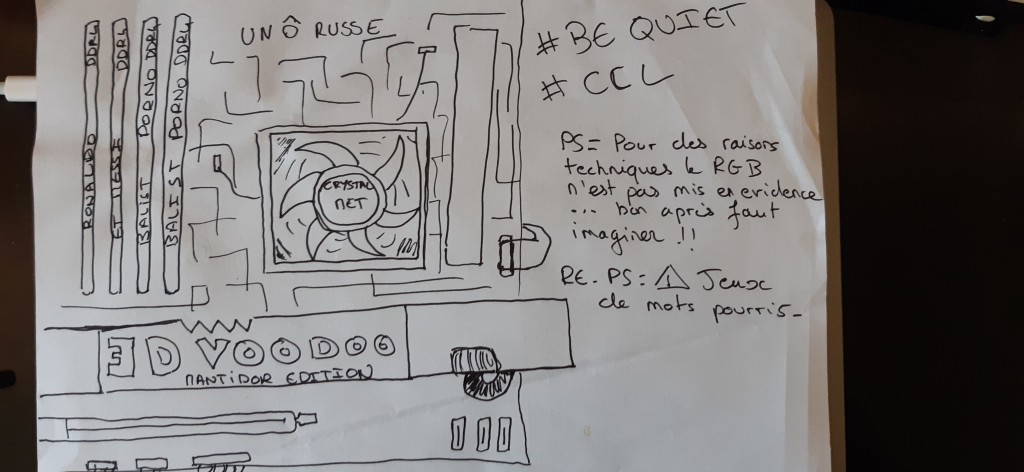 UN Ô RUSSE
# BE QUIET
# CCL
RONALDO DDRL
ET MESSI DDRL
BALIST PORNO DDRL
BALIST PORNO DDRL
CRYSTAL
NET
PS= Pour des raisons
techniques le RGB
n'est pas mis en evidence
... bon après faut
imaginer !!
RE-PS: ⚠ Jeux
de mots pourris-
3D VOODOO
MANTIDOR EDITION